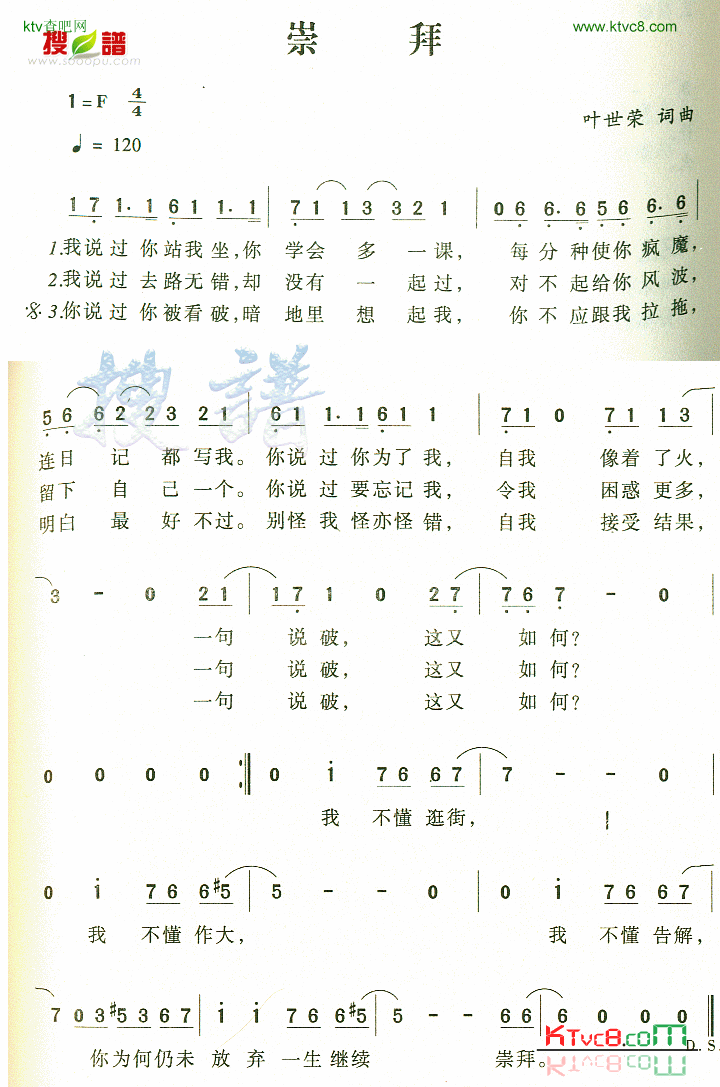 ktv查吧网
www.ktvc8.com
搜谱
www.sooopu.com
崇 拜
1=F 4/4
叶世荣 词曲
♩= 120
1 7 1· 1 6 1 1· 1 | 7 1 1 3 3 3 2 1 | 0 6 6· 6 5 6 6· 6
1.我说过你站我坐,你 学会 多 一课, 每分种使你疯魔,
2.我说过去路无错,却 没有 一 起过, 对不起给你风波,
3.你说过你被看破,暗 地里 想 起我, 你不应跟我拉拖,
搜 譜
5 6 6 2 2 3 2 1 | 6 1 1· 1 6 1 1 | 7 1 0 7 1 1 3
连日 记 都 写我。你说 过 你为了我, 自我 像着 了火,
留下 自 己 一个。你说 过 要忘记我, 令我 困惑 更多,
明白 最 好 不过。别怪 我 怪亦怪错, 自我 接受 结果,
3 - 0 2 1 | 1 7 1 0 2 7 | 7 6 7 - 0
一句 说破, 这又 如何?
一句 说破, 这又 如何?
一句 说破, 这又 如何?
0 0 0 0 :|| 0 i 7 6 6 7 | 7 - - 0
我 不懂 逛街,
0 i 7 6 6 #5 | 5 - - 0 | 0 i 7 6 6 7
我 不懂 作大, 我 不懂 告解,
7 0 3 #5 3 6 7 | i i 7 6 6 #5 | 5 - - 6 6 | 6 0 0 0
你为何仍未 放 弃 一生 继续 崇拜。
KTvc8.com
D. S.